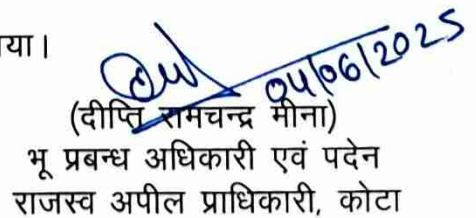 या।
04/06/2025
(दीप्ति रामचन्द्र मीना)
भू प्रबन्ध अधिकारी एवं पदेन
राजस्व अपील प्राधिकारी, कोटा